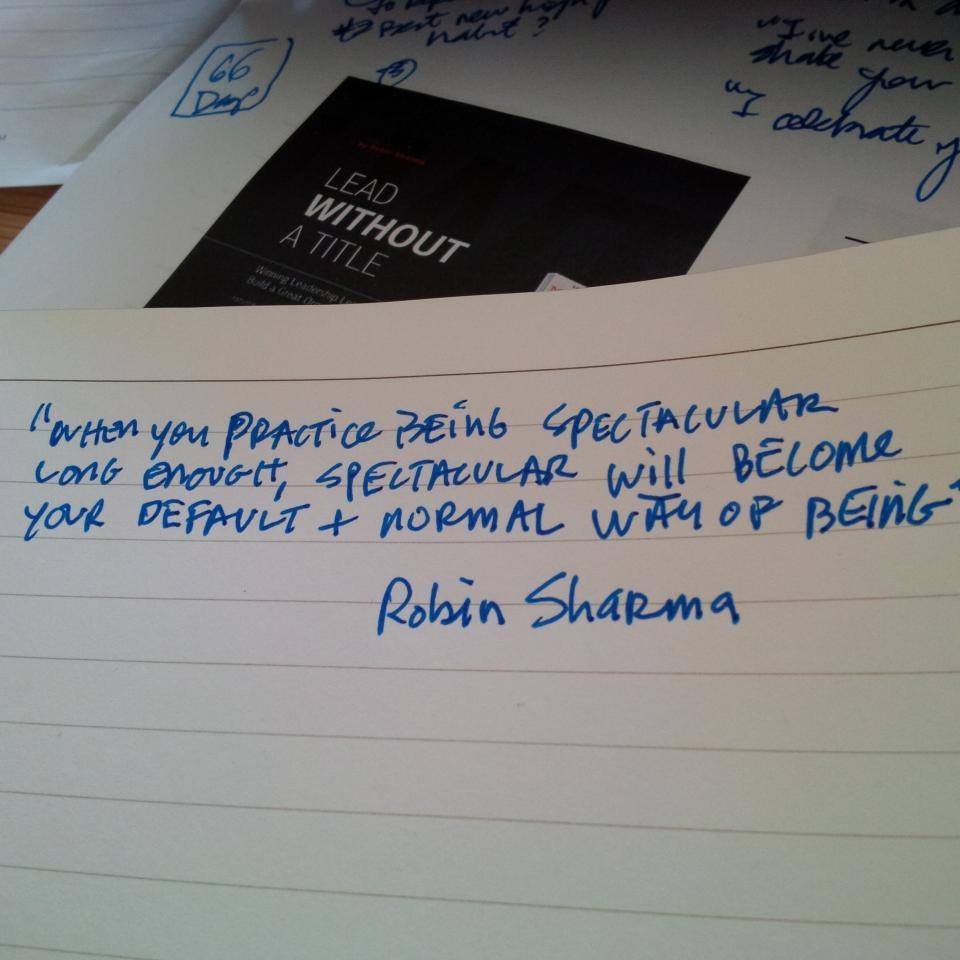 new
habit?
66
Days
"I've never
shake your
"I celebrate
by Robin Sharma
LEAD
WITHOUT
A TITLE
Winning Leadership
Build a Great
"WHEN YOU PRACTICE BEING SPECTACULAR
LONG ENOUGH, SPECTACULAR WILL BECOME
YOUR DEFAULT + NORMAL WAY OF BEING"
Robin Sharma